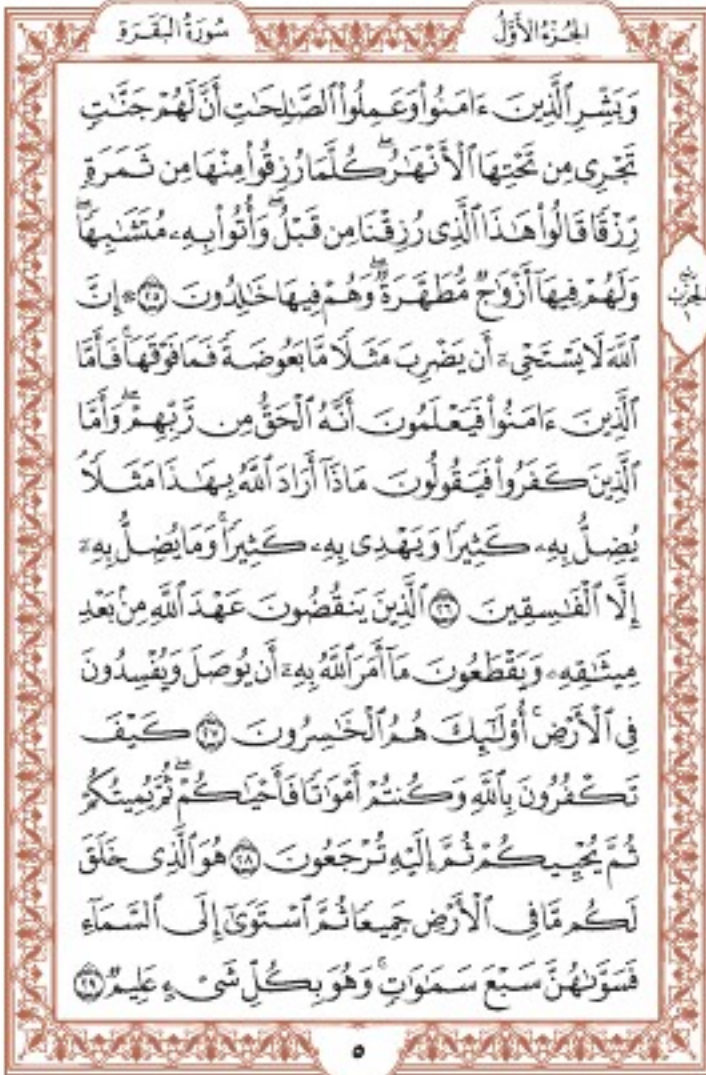 الجُزْءُ الأَوَّلُ
سُورَةُ البَقَرَةِ
وَبَشِّرِ ٱلَّذِينَ ءَامَنُواْ وَعَمِلُواْ ٱلصَّٰلِحَٰتِ أَنَّ لَهُمْ جَنَّٰتٍ
تَجْرِى مِن تَحْتِهَا ٱلْأَنْهَٰرُ ۖ كُلَّمَا رُزِقُواْ مِنْهَا مِن ثَمَرَةٍ
رِّزْقًا قَالُواْ هَٰذَا ٱلَّذِى رُزِقْنَا مِن قَبْلُ ۖ وَأُتُواْ بِهِۦ مُتَشَٰبِهًا ۖ
وَلَهُمْ فِيهَآ أَزْوَٰجٌ مُّطَهَّرَةٌ ۖ وَهُمْ فِيهَا خَٰلِدُونَ ۝٢٥ ۞ إِنَّ
ربع
الحزب
١
ٱللَّهَ لَا يَسْتَحْىِۦٓ أَن يَضْرِبَ مَثَلًا مَّا بَعُوضَةً فَمَا فَوْقَهَا ۚ فَأَمَّا
ٱلَّذِينَ ءَامَنُواْ فَيَعْلَمُونَ أَنَّهُ ٱلْحَقُّ مِن رَّبِّهِمْ ۖ وَأَمَّا
ٱلَّذِينَ كَفَرُواْ فَيَقُولُونَ مَاذَآ أَرَادَ ٱللَّهُ بِهَٰذَا مَثَلًا ۘ
يُضِلُّ بِهِۦ كَثِيرًا وَيَهْدِى بِهِۦ كَثِيرًا ۚ وَمَا يُضِلُّ بِهِۦٓ
إِلَّا ٱلْفَٰسِقِينَ ۝٢٦ ٱلَّذِينَ يَنقُضُونَ عَهْدَ ٱللَّهِ مِنۢ بَعْدِ
مِيثَٰقِهِۦ وَيَقْطَعُونَ مَآ أَمَرَ ٱللَّهُ بِهِۦٓ أَن يُوصَلَ وَيُفْسِدُونَ
فِى ٱلْأَرْضِ ۚ أُوْلَٰٓئِكَ هُمُ ٱلْخَٰسِرُونَ ۝٢٧ كَيْفَ
تَكْفُرُونَ بِٱللَّهِ وَكُنتُمْ أَمْوَٰتًا فَأَحْيَٰكُمْ ۖ ثُمَّ يُمِيتُكُمْ
ثُمَّ يُحْيِيكُمْ ثُمَّ إِلَيْهِ تُرْجَعُونَ ۝٢٨ هُوَ ٱلَّذِى خَلَقَ
لَكُم مَّا فِى ٱلْأَرْضِ جَمِيعًا ثُمَّ ٱسْتَوَىٰٓ إِلَى ٱلسَّمَآءِ
فَسَوَّىٰهُنَّ سَبْعَ سَمَٰوَٰتٍ ۚ وَهُوَ بِكُلِّ شَىْءٍ عَلِيمٌ ۝٢٩
٥